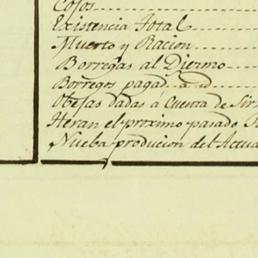 Cojos
Existencia Total
Muerto y Racion
Borregas al Diezmo
Borregos pagad. a id
Obejas dadas á Cuenta de Sir
Heran el proximo pasado
Nueba producion del Actua